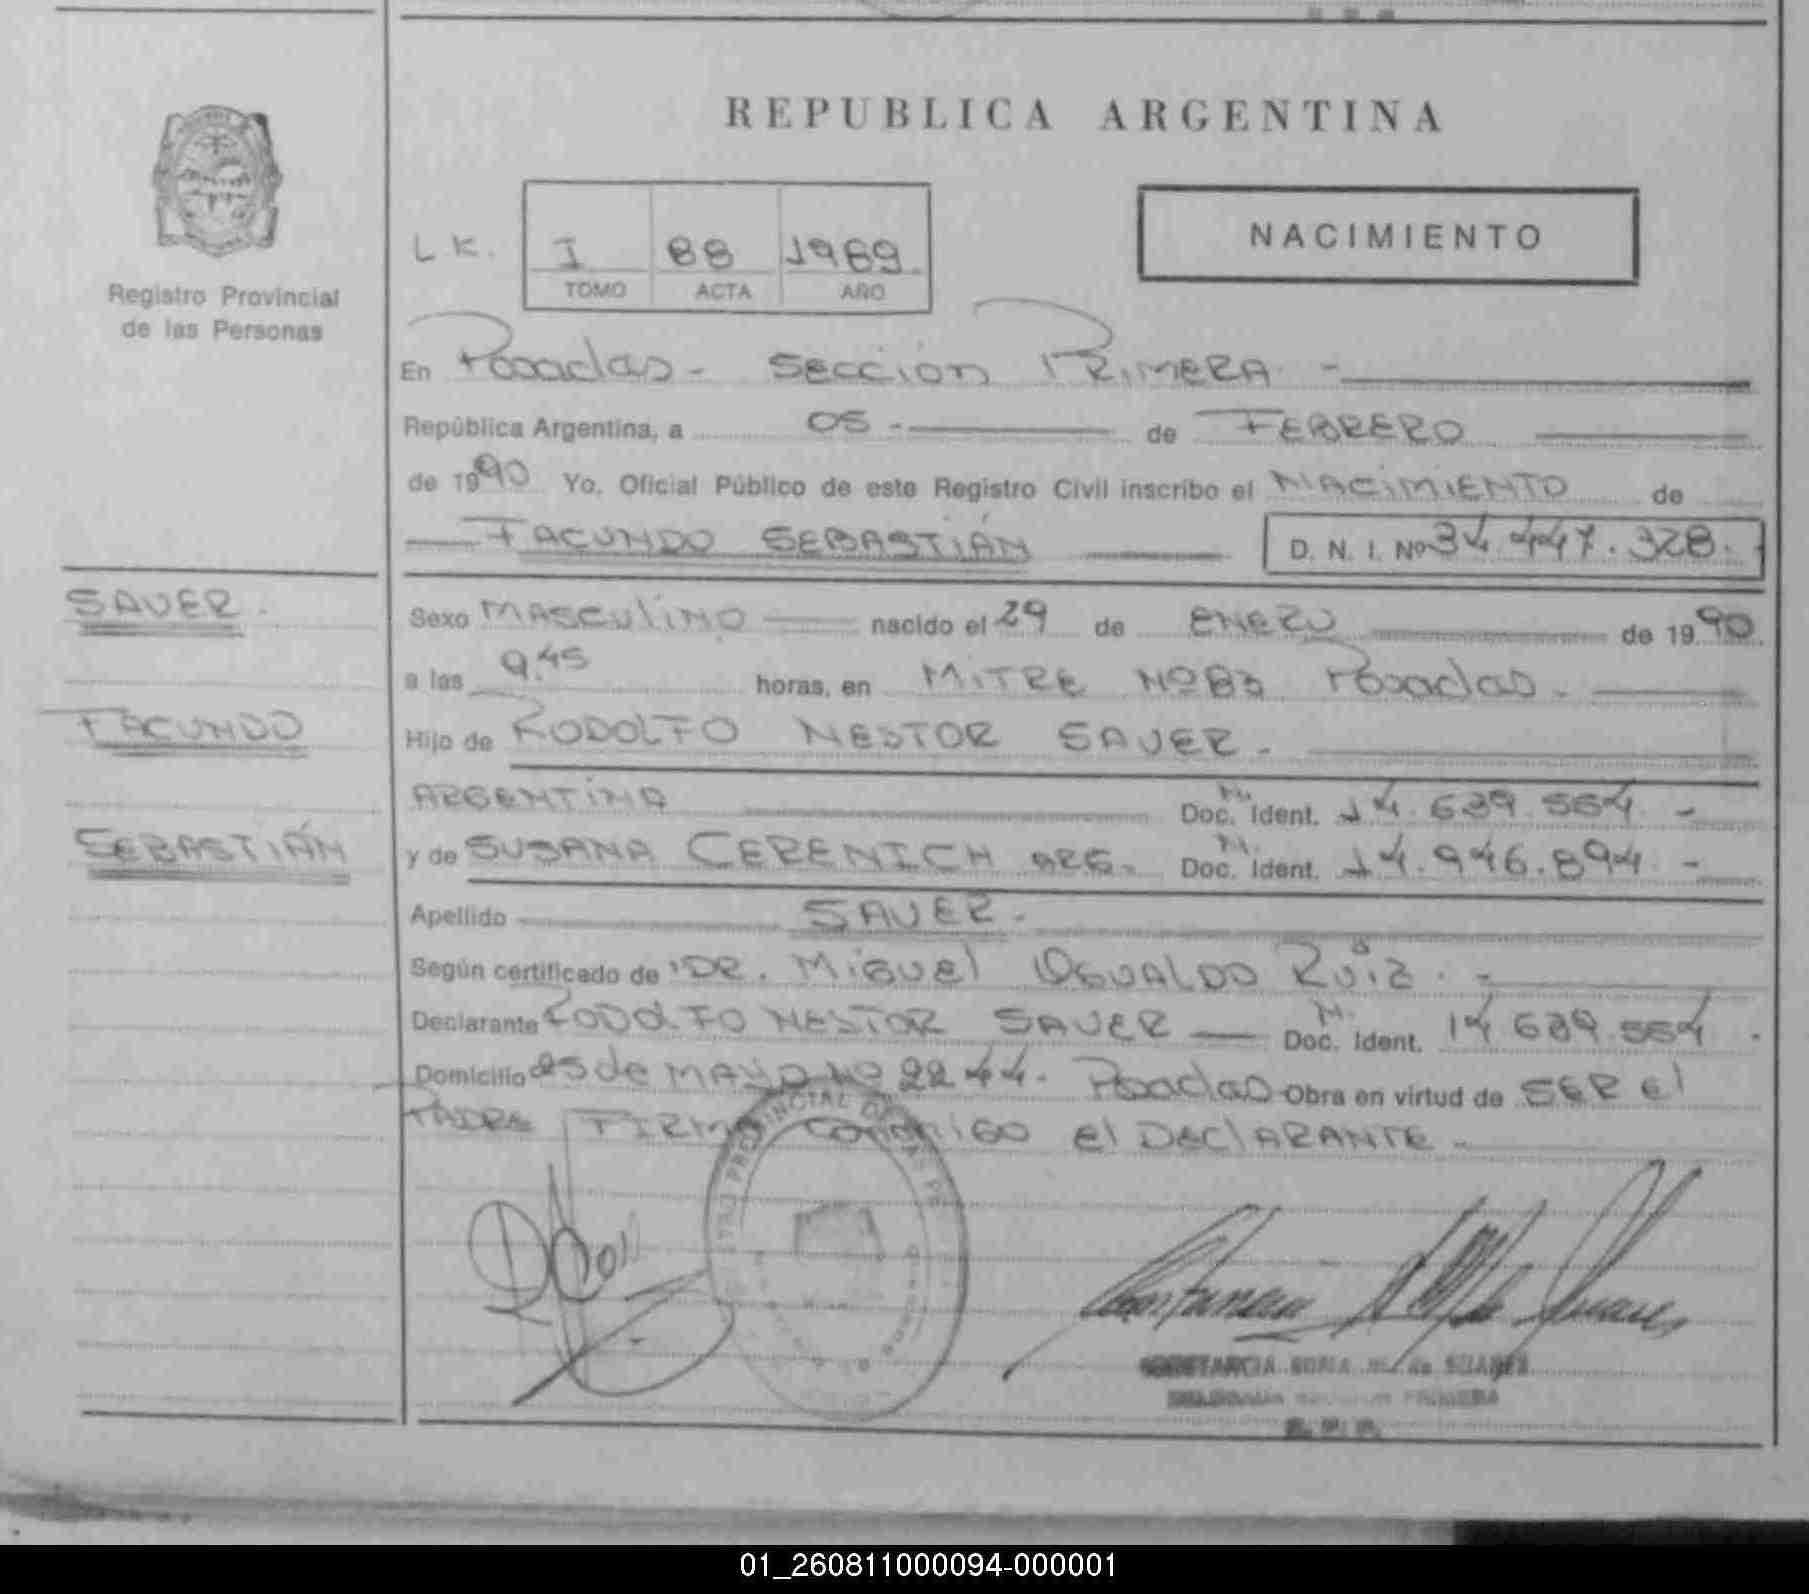 REPUBLICA ARGENTINA
NACIMIENTO
L.K. I 88 1989
TOMO ACTA AÑO
Registro Provincial
de las Personas
En Posadas - Sección PRIMERA -
República Argentina, a 05 - de FEBRERO
de 1990 Yo, Oficial Público de este Registro Civil inscribo el NACIMIENTO de
FACUNDO SEBASTIÁN D. N. I. Nº 34.447.328.
SAUER.
FACUNDO
SEBASTIÁN
Sexo MASCULINO nacido el 29 de ENERO de 1990.
a las 9.45 horas, en MITRE Nº 83 Posadas.
Hijo de RODOLFO NESTOR SAUER.
ARGENTINO Doc. M. Ident. 14.639.554 -
y de SUSANA CERENICH ARG. Doc. M. Ident. 14.946.894 -
Apellido SAUER.
Según certificado de DR. Miguel OSVALDO RUIZ. -
Declarante RODOLFO NESTOR SAUER Doc. M. Ident. 14 639.554.
Domicilio 25 de MAYO Nº 2244. Posadas Obra en virtud de SER el
PADRE FIRMA CONMIGO el DECLARANTE -
CONSTANCIA de SUAREZ
PRIMERA
01_260811000094-000001